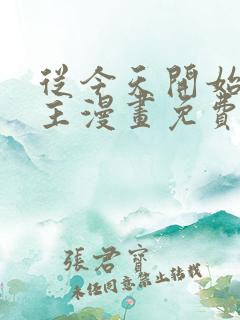 從今天開始
王漫畫免費
張君寶
未經同意禁止轉載